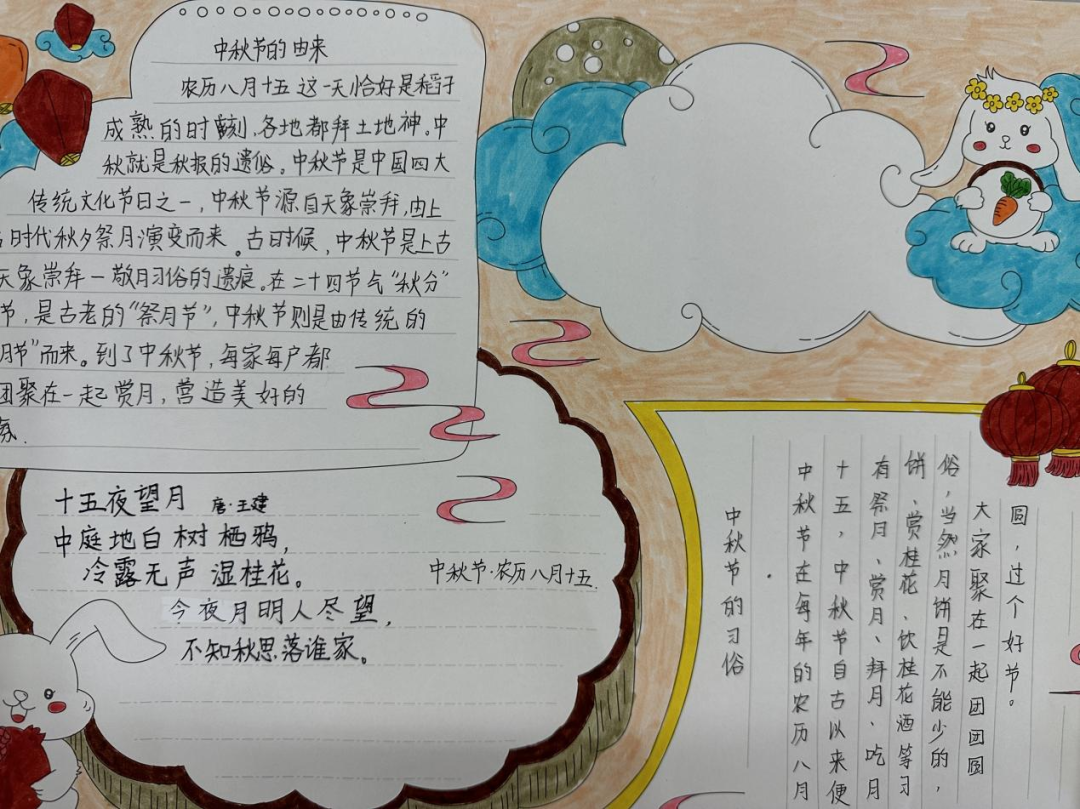 中秋节的由来
农历八月十五这一天恰好是稻子
成熟的时刻,各地都拜土地神。中
秋就是秋报的遗俗。中秋节是中国四大
传统文化节日之一,中秋节源自天象崇拜,由上
时代秋夕祭月演变而来。古时候,中秋节是上古
天象崇拜一敬月习俗的遗痕。在二十四节气“秋分”
节,是古老的“祭月节”,中秋节则是由传统的
月节”而来。到了中秋节,每家每户都
团聚在一起赏月,营造美好的
十五夜望月 唐·王建
中庭地白树栖鸦,
冷露无声湿桂花。
今夜月明人尽望,
不知秋思落谁家。
中秋节·农历八月十五
中秋节的习俗
中秋节在每年的农历八月
十五,中秋节自古以来便
有祭月、赏月、拜月、吃月
饼、赏桂花、饮桂花酒等习
俗,当然月饼是不能少的,
大家聚在一起团团圆
圆,过个好节。